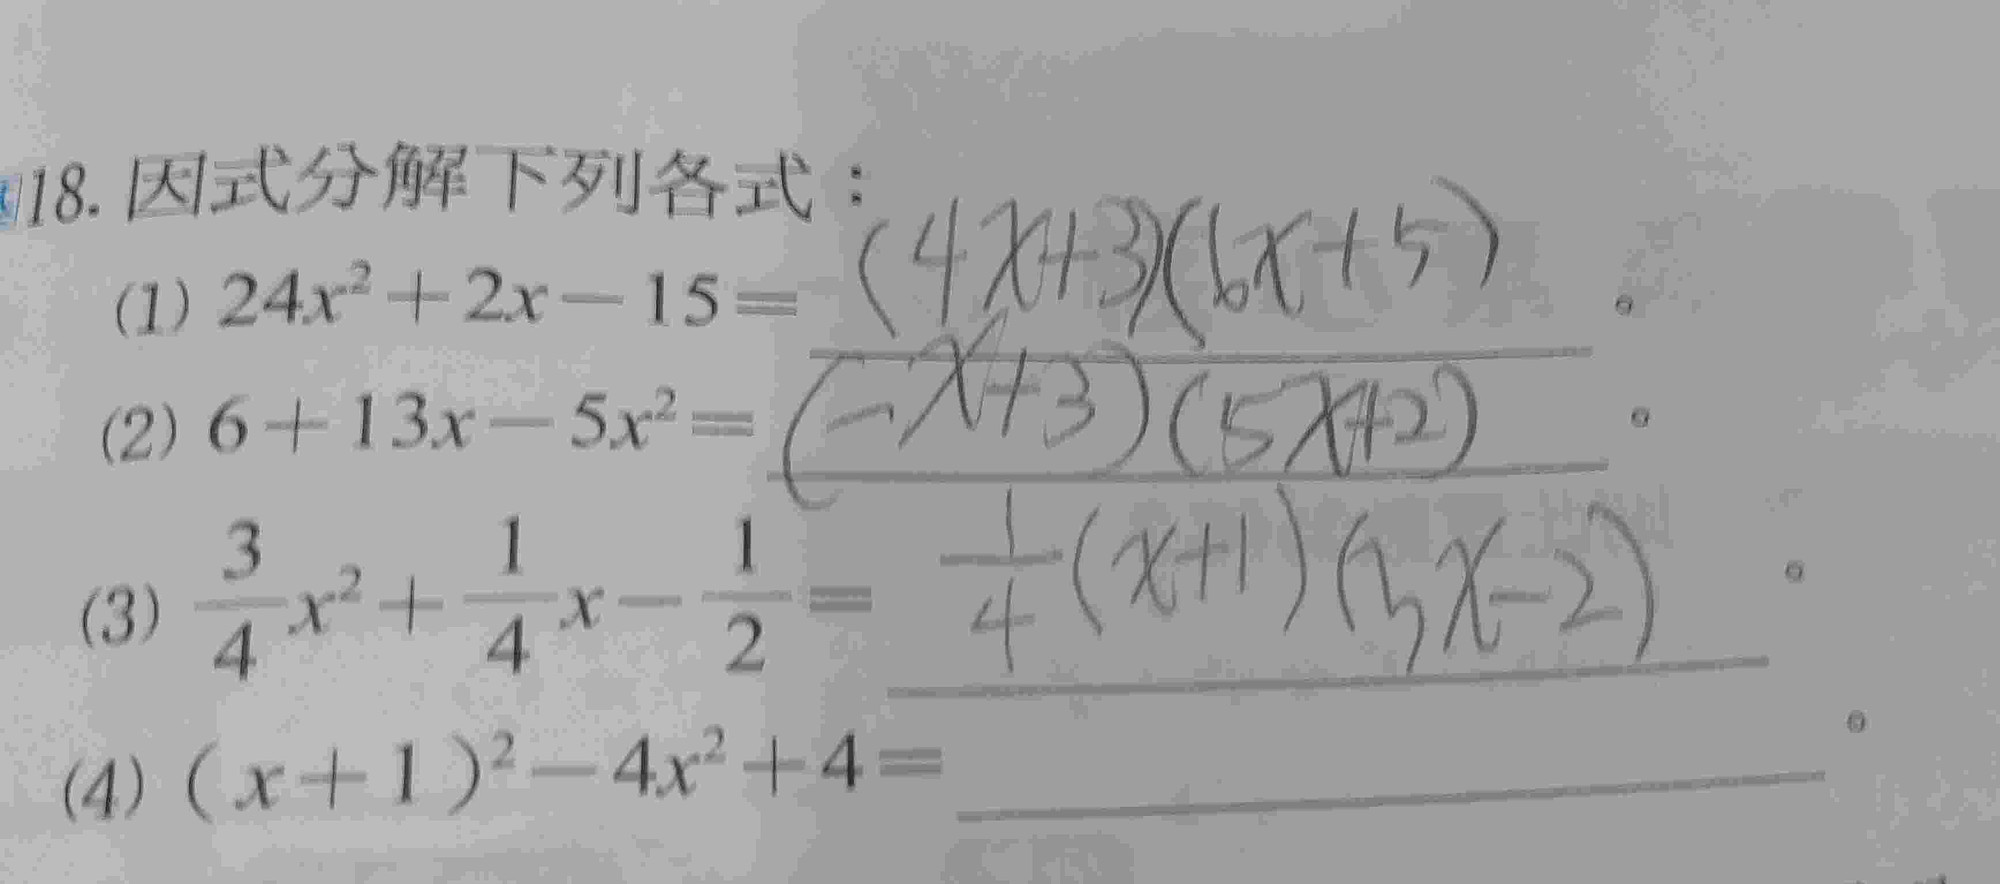 18. 因式分解下列各式：
(1) 24x² + 2x − 15 = (4x+3)(6x+5) 。
(2) 6 + 13x − 5x² = (-x+3)(5x+2) 。
(3) 3/4 x² + 1/4 x − 1/2 = 1/4 (x+1)(3x-2) 。
(4) (x + 1)² − 4x² + 4 = 。